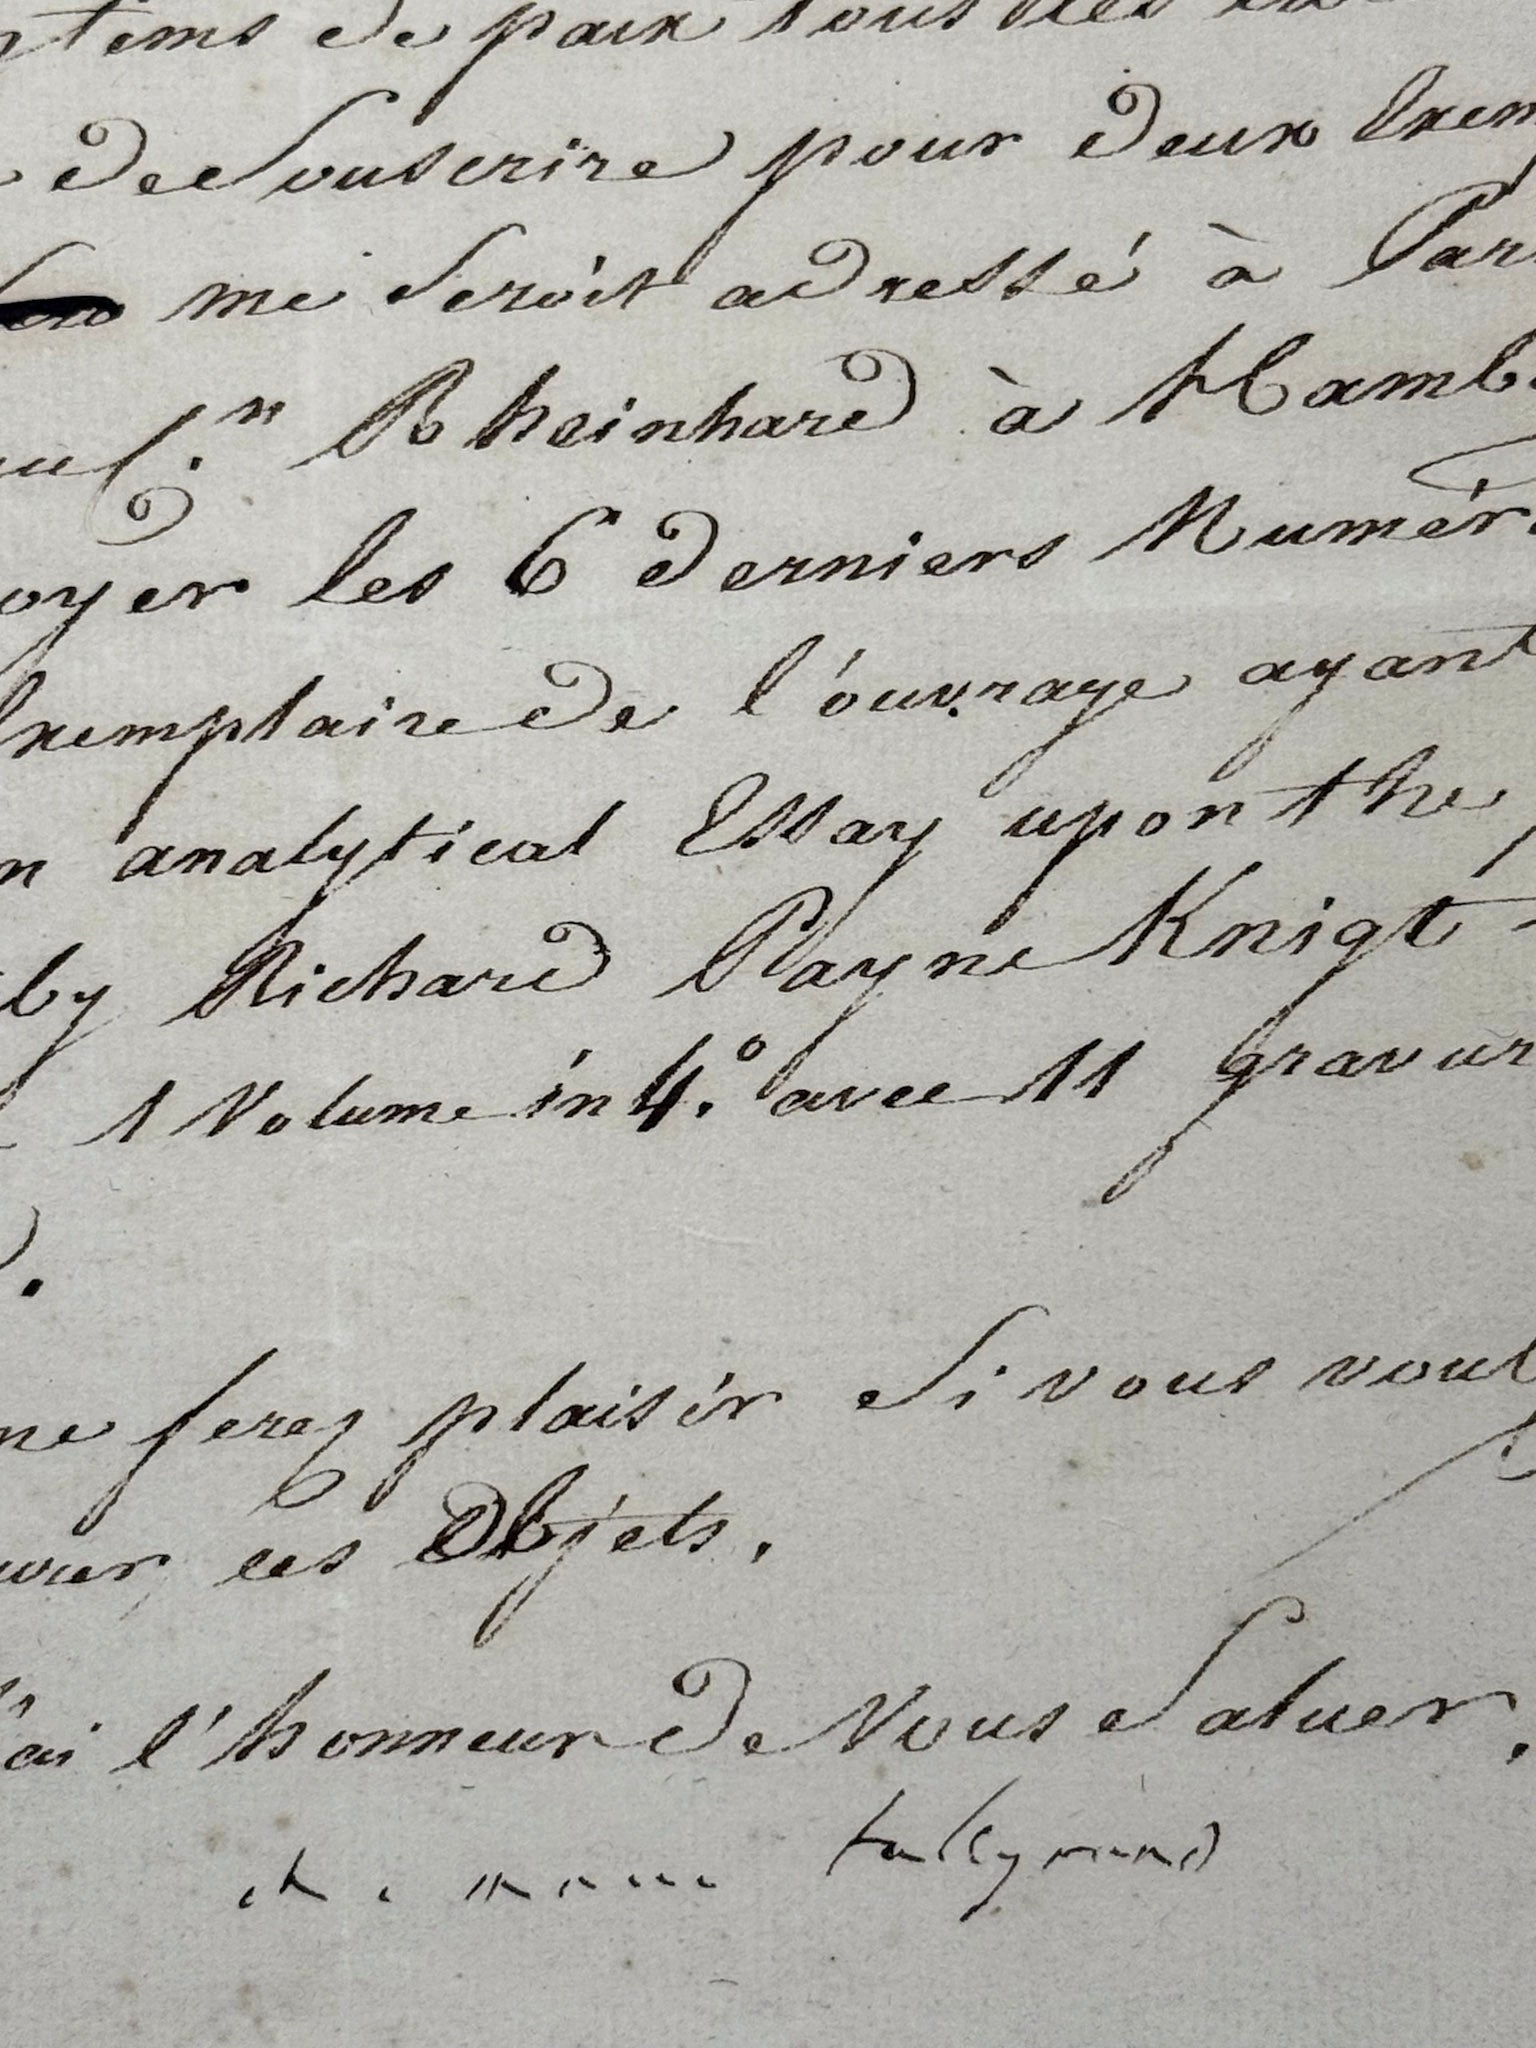 tems de paix tous les
de Souscrire pour deux Exem
me seroit adressé à Par
C.en Rheinhard à Hamb
oyer les 6 derniers Numér
Exemplaire de l'ouvrage ayant
n analytical Essay upon the
by Richard Payne Knigt
1 Volume in 4.° avec 11 gravur
me ferez plaisir Si vous voul
ces Objets.
ai l'honneur de Vous Saluer.
ch. mau. talleyrand